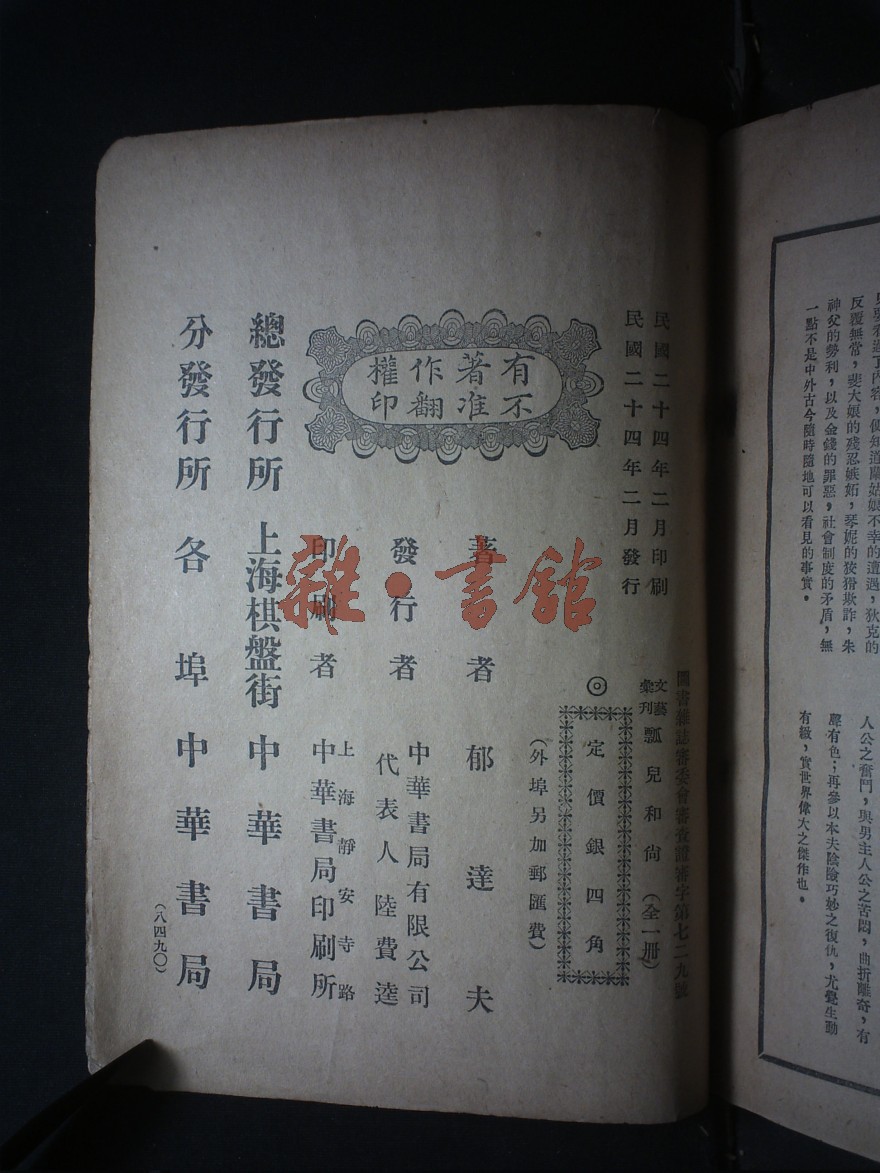 反覆無常，斐大娘的殘忍嫉妬，琴妮的狡猾欺詐，朱
神父的勢利，以及金錢的罪惡，社會制度的矛盾，無
一點不是中外古今隨時隨地可以看見的事實。
人公之奮鬥，與男主人公之苦悶，曲折離奇，有
聲有色；再參以本夫陰險巧妙之復仇，尤覺生動
有緻，實世界偉大之傑作也。
圖書雜誌審委會審查證審字第七二九號
民國二十四年二月印刷
民國二十四年二月發行
文藝彙刊
瓢兒和尚（全一冊）
◎定價銀四角
（外埠另加郵匯費）
有著作權
不准翻印
著者 郁達夫
發行者 中華書局有限公司
代表人陸費逵
上海靜安寺路
印刷者 中華書局印刷所
總發行所 上海棋盤街 中華書局
分發行所 各埠中華書局
（八四九〇）
雜·書館